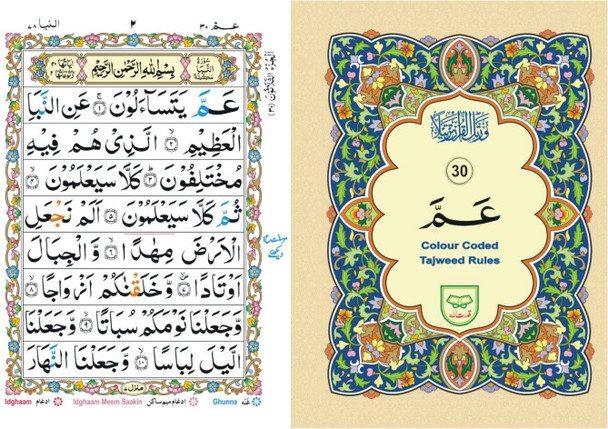 النبا ٧٨
٢
عمّ ٣٠
سُوْرَةُ النَّبَاِ مَكِّيَّةٌ
بِسْمِ اللّٰهِ الرَّحْمٰنِ الرَّحِيْمِ
عَمَّ يَتَسَآءَلُوْنَ ۝١ عَنِ النَّبَاِ
الْعَظِيْمِ ۝٢ الَّذِيْ هُمْ فِيْهِ
مُخْتَلِفُوْنَ ۝٣ كَلَّا سَيَعْلَمُوْنَ ۝٤
ثُمَّ كَلَّا سَيَعْلَمُوْنَ ۝٥ اَلَمْ نَجْعَلِ
الْاَرْضَ مِهٰدًا ۝٦ وَّالْجِبَالَ
اَوْتَادًا ۝٧ وَّخَلَقْنٰكُمْ اَزْوَاجًا ۝٨
وَّجَعَلْنَا نَوْمَكُمْ سُبَاتًا ۝٩ وَّجَعَلْنَا
الَّيْلَ لِبَاسًا ۝١٠ وَّجَعَلْنَا النَّهَارَ
منزل ٧
Idghaam ادغام
Idghaam Meem Saakin ادغام میم ساکن
Ghunna غنه
وَرَتِّلِ الْقُرْاٰنَ تَرْتِيْلًا
30
عَمَّ
Colour Coded
Tajweed Rules